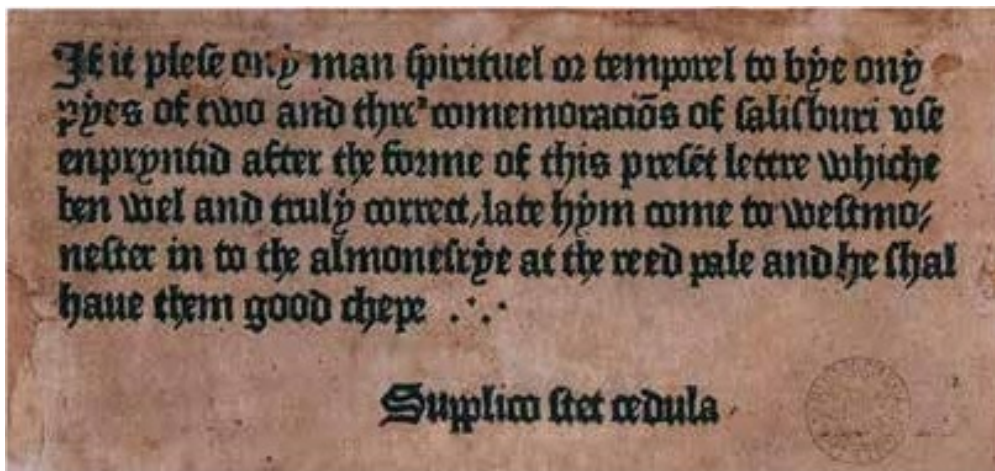 If it plese ony man spirituel or temporel to bye ony
pyes of two and thre comemoraciōs of salisburi vse
enpryntid after the forme of this presēt lettre whiche
ben wel and truly correct, late hym come to westmo/
nester in to the almonesrye at the reed pale and he shal
haue them good chepe .·.·
Supplico stet cedula